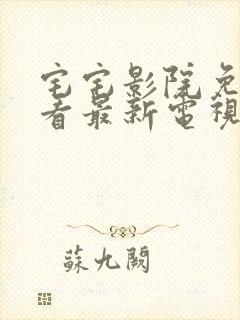 宅宅影院免
看最新電視
蘇九闕